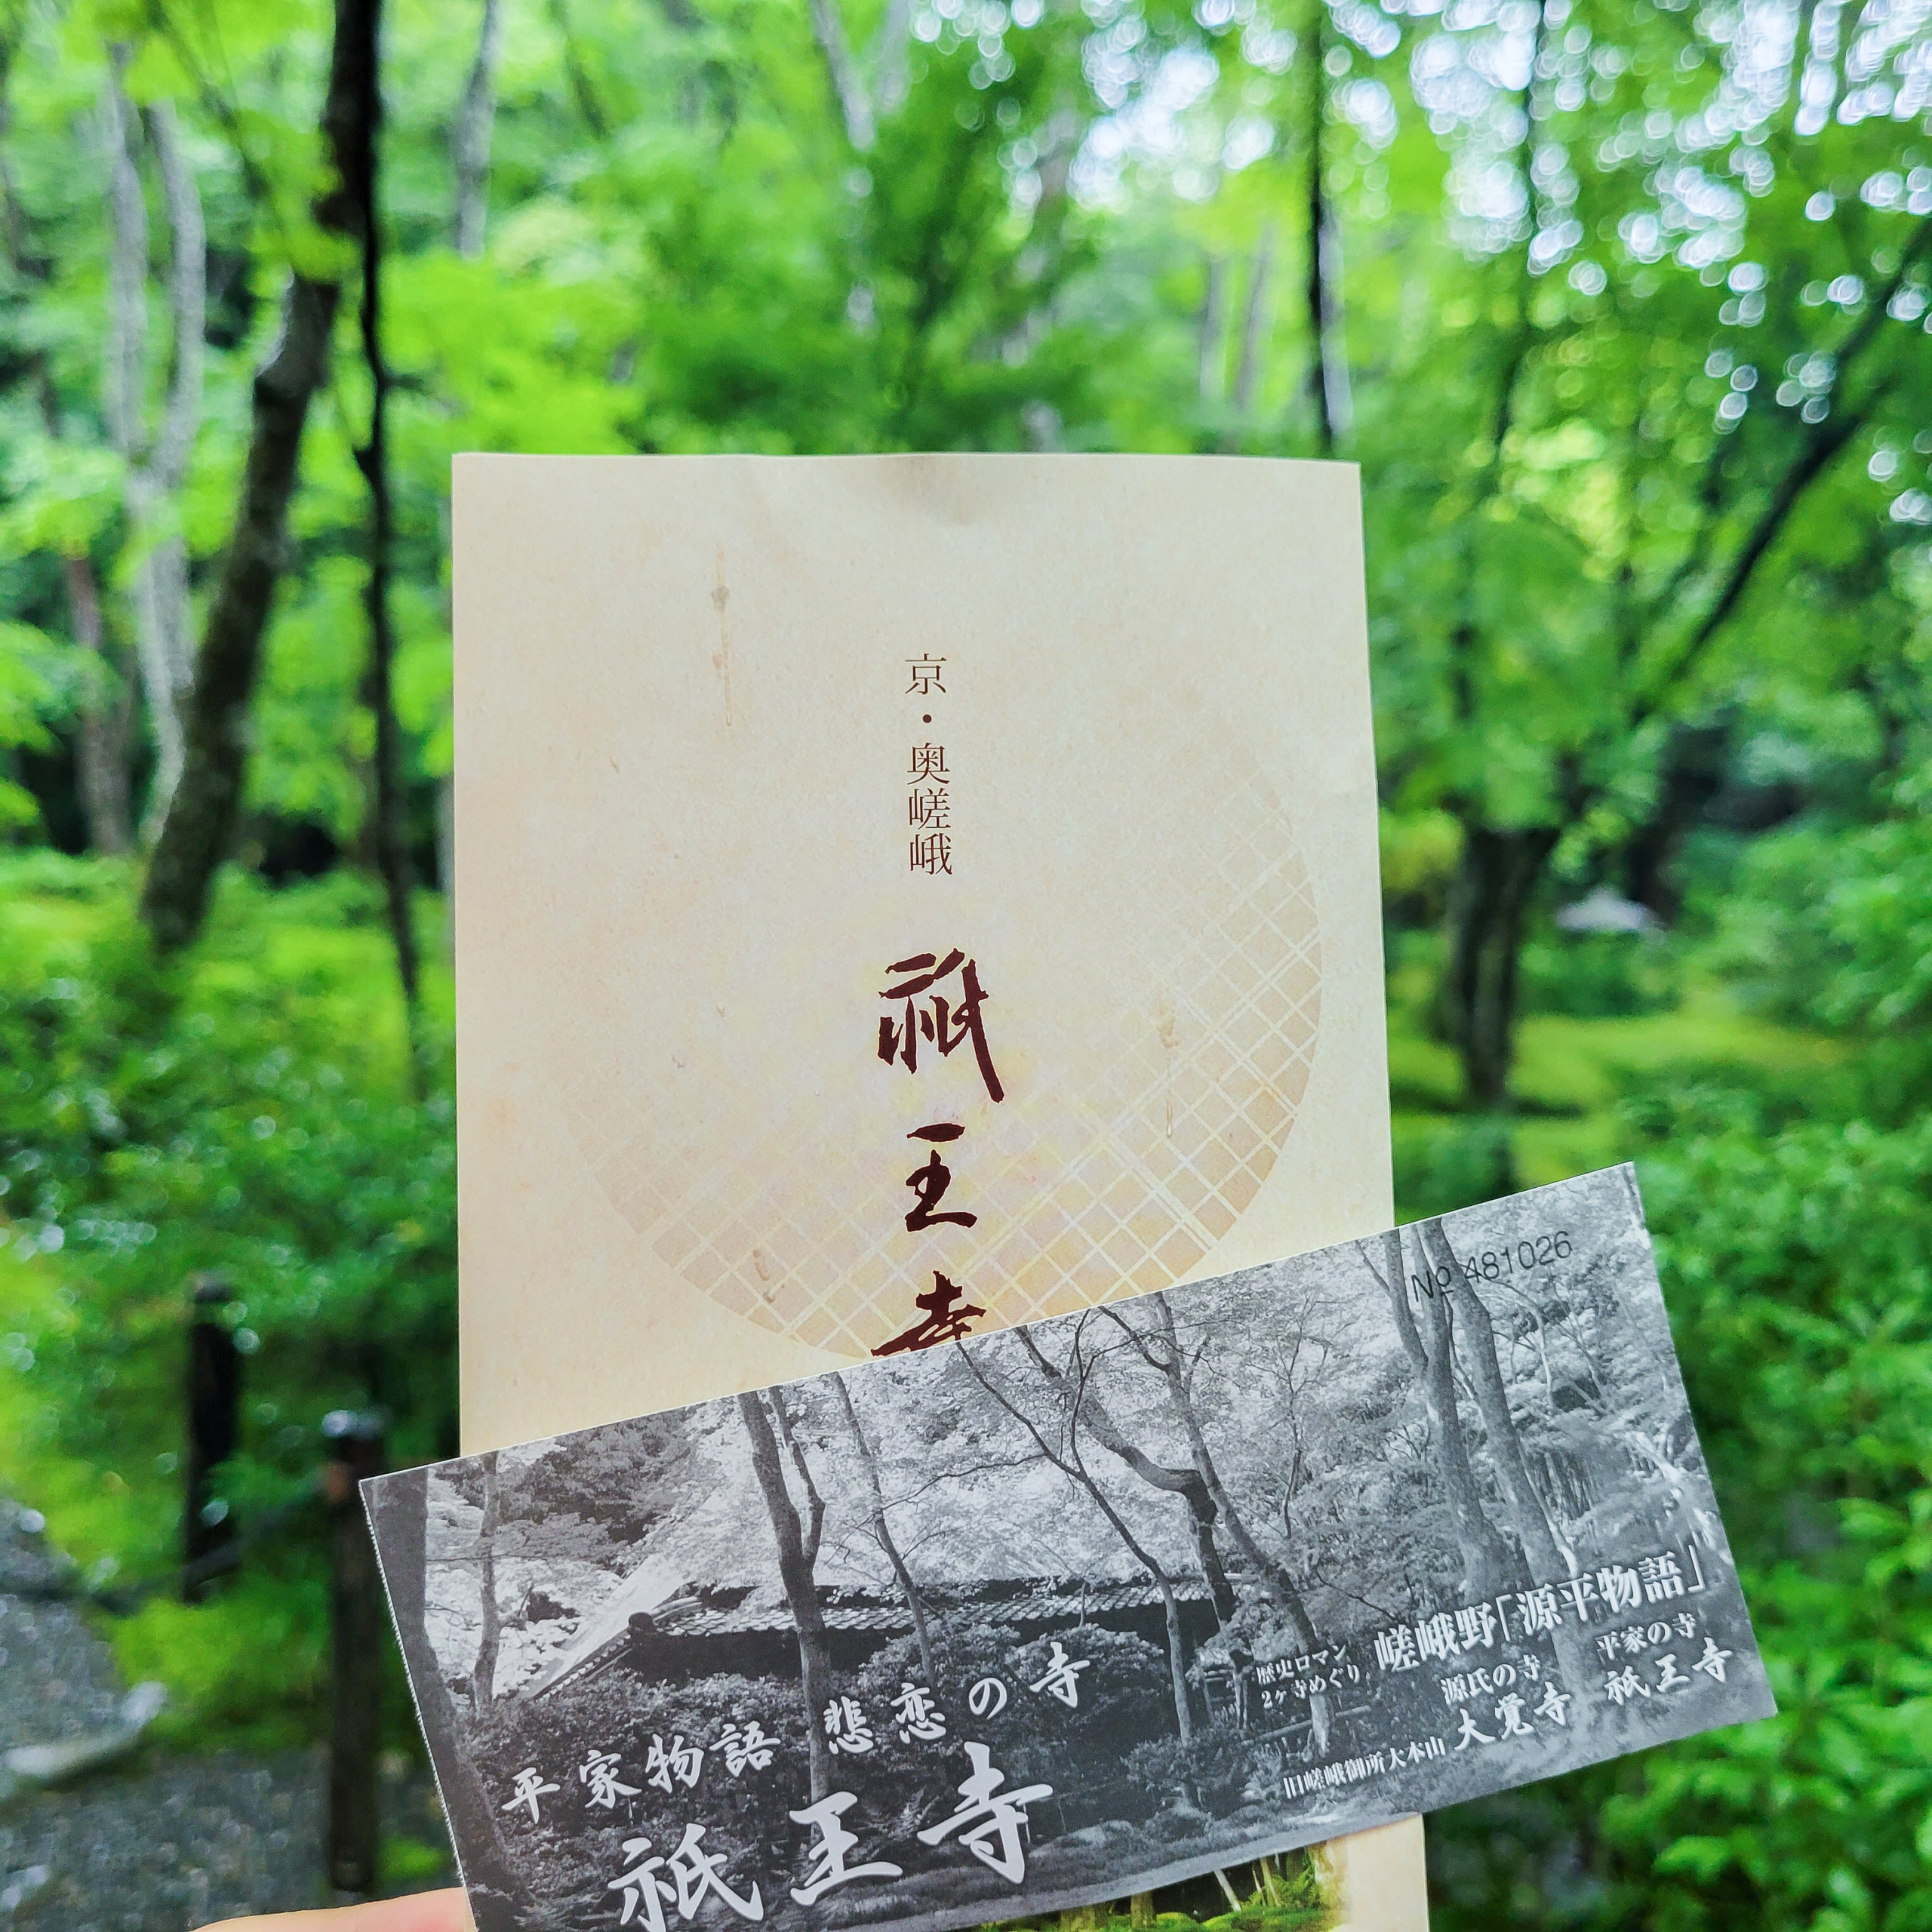 京・奥嵯峨
祇王寺
№ 481026
平家物語 悲恋の寺
祇王寺
歴史ロマン
2ヶ寺めぐり
嵯峨野「源平物語」
源氏の寺
旧嵯峨御所大本山 大覚寺
平家の寺
祇王寺